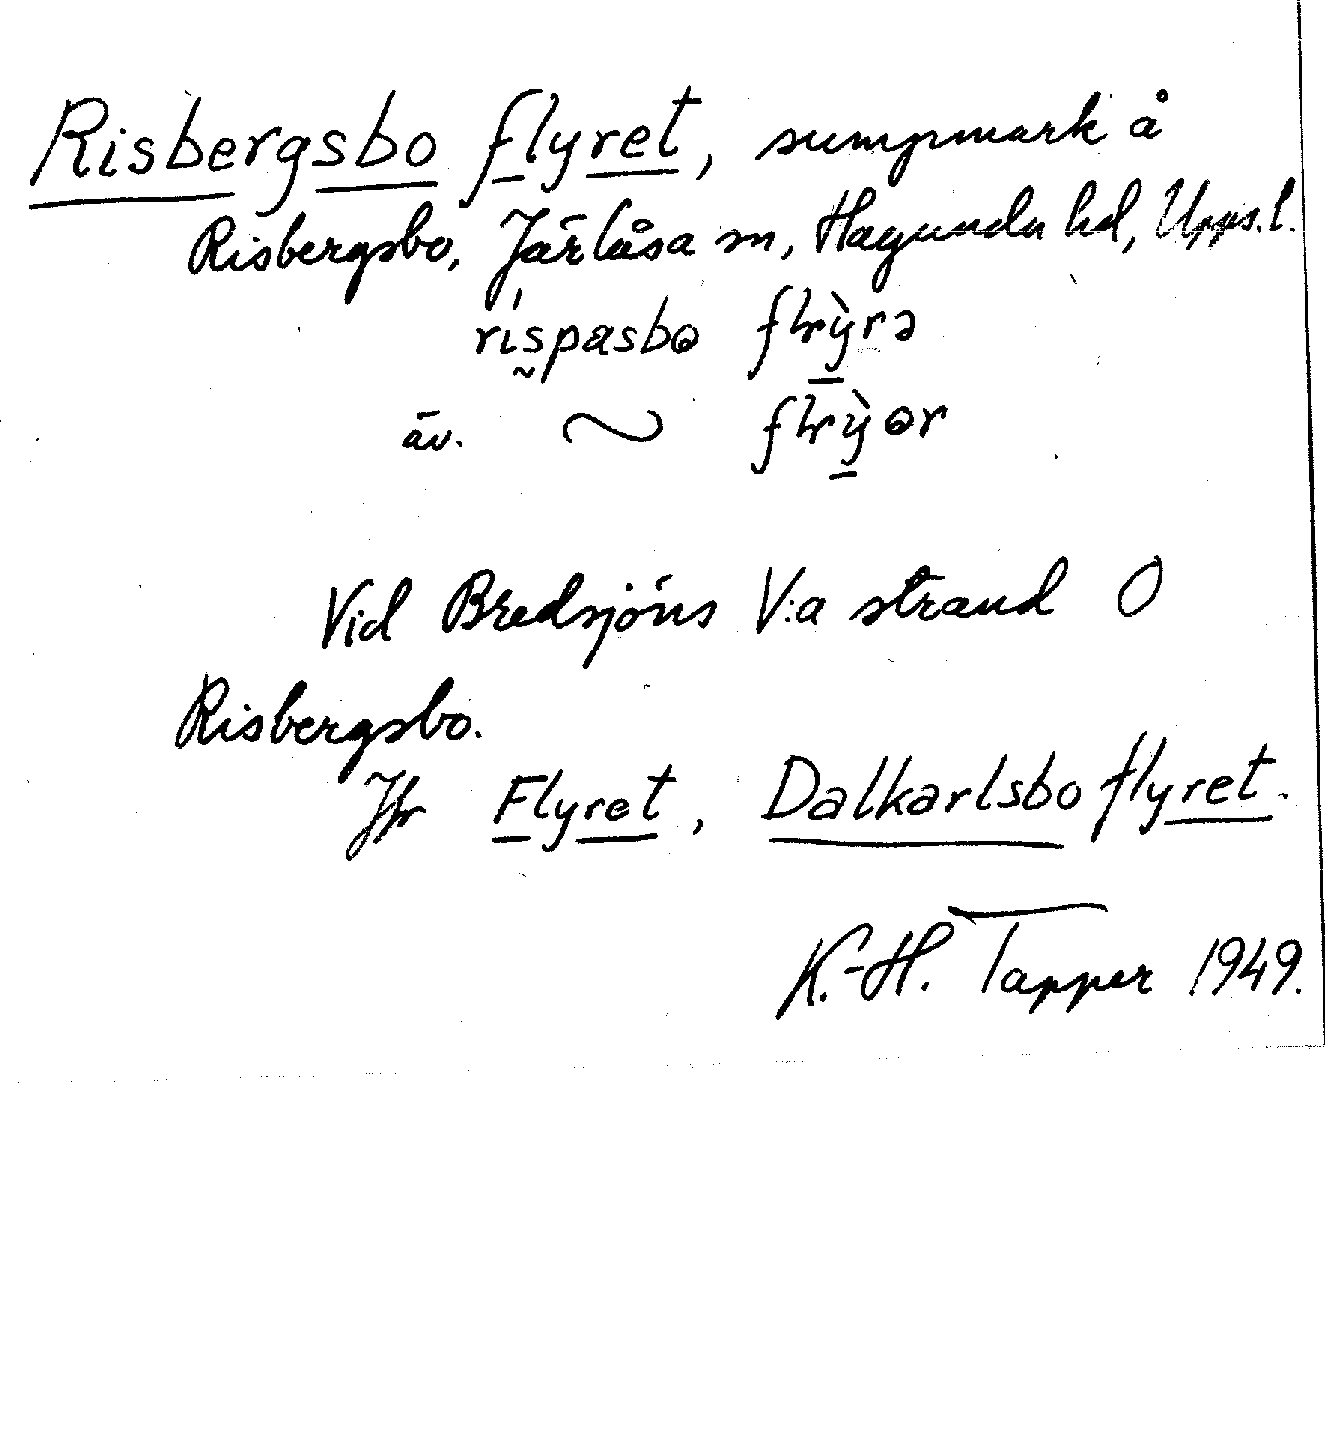 Risbergsbo flyret, sumpmark å
Risbergsbo, Järlåsa sn, Hagunda hd, Upps. l.
rispasbo
äv. ~
Vid Bredsjöns V:a strand O
Risbergsbo.
Jfr Flyret, Dalkarlsbo flyret.
K.-H. Tapper 1949.